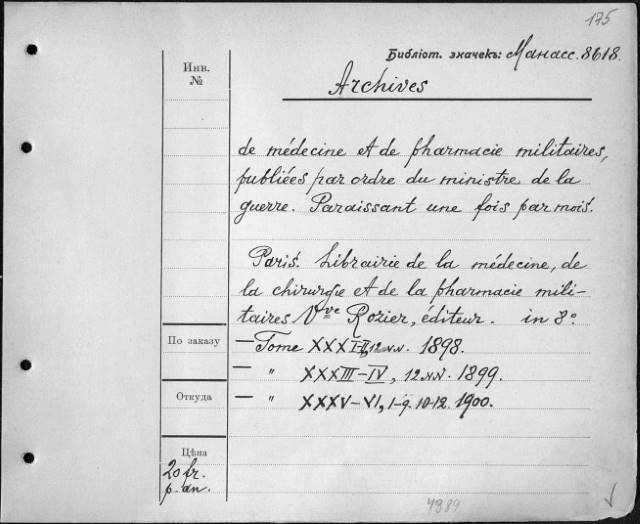 175
Библіот. значекъ: Манасс. 8618.
Инв.
№
Archives
de médecine et de pharmacie militaires,
publiées par ordre du ministre de la
guerre. Paraissant une fois par mois.
Paris. Librairie de la médecine, de
la chirurgie et de la pharmacie mili-
taires Vve Rozier, éditeur. in 8°
По заказу
— Tome XXXI-II, 12 n.n. 1898.
— " XXXIII-IV, 12 n.n. 1899.
Откуда
— " XXXV-VI, 1-9. 10-12. 1900.
Цѣна
20 fr.
p. an.
4389